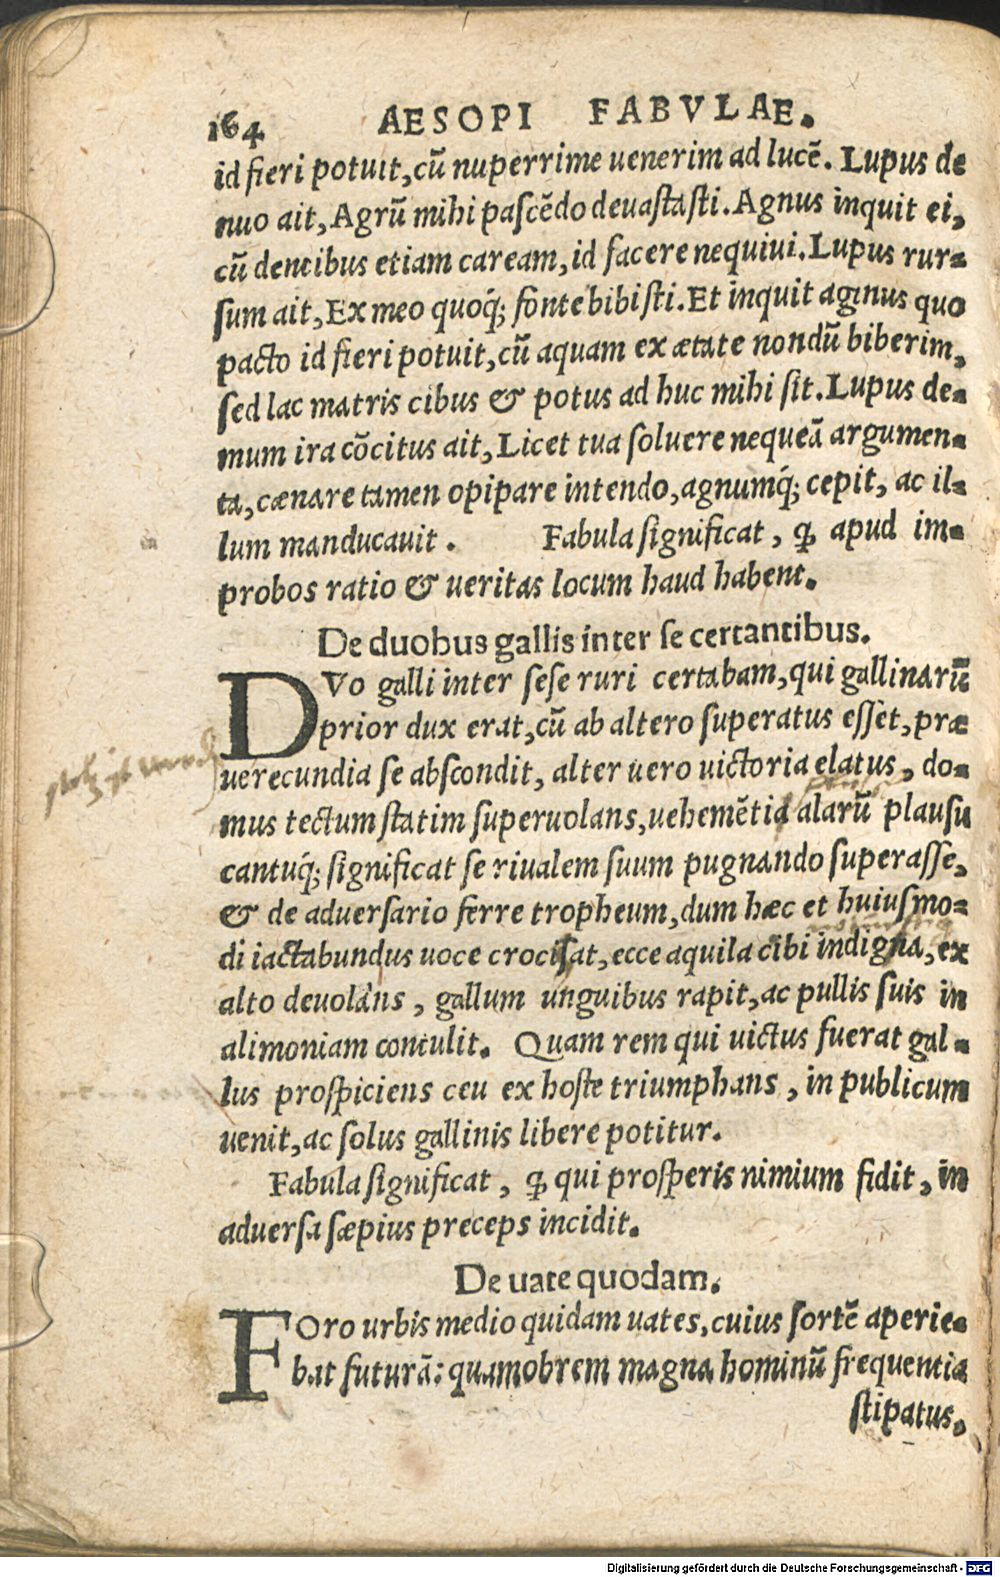 164 AESOPI FABVLAE.
id fieri potuit, cũ nuperrime uenerim ad lucẽ. Lupus de
nuo ait, Agrũ mihi pascẽdo deuastasti. Agnus inquit ei,
cũ dentibus etiam caream, id facere nequiui. Lupus rur-
sum ait, Ex meo quoq́; fonte bibisti. Et inquit agnus quo
pacto id fieri potuit, cũ aquam ex ætate nondũ biberim,
sed lac matris cibus & potus ad huc mihi sit. Lupus de-
mum ira cõcitus ait, Licet tua soluere nequeã argumen-
ta, cænare tamen opipare intendo, agnumq́; cepit, ac il-
lum manducauit. Fabula significat, ꝙ apud im-
probos ratio & ueritas locum haud habent.
De duobus gallis inter se certantibus.
DVo galli inter sese ruri certabam, qui gallinarũ
prior dux erat, cũ ab altero superatus esset, præ
uerecundia se abscondit, alter uero uictoria elatus, do-
mus tectum statim superuolans, uehemẽtia alarũ plausu
cantuq́; significat se riualem suum pugnando superasse,
& de aduersario ferre tropheum, dum hæc et huiusmo-
di iactabundus uoce crocisat, ecce aquila cibi indigna, ex
alto deuolans, gallum unguibus rapit, ac pullis suis in
alimoniam contulit. Quam rem qui uictus fuerat gal-
lus prospiciens ceu ex hoste triumphans, in publicum
uenit, ac solus gallinis libere potitur.
Fabula significat, ꝙ qui prosperis nimium fidit, in
aduersa sæpius preceps incidit.
De uate quodam.
FOro urbis medio quidam uates, cuius sortẽ aperie-
bat futurã: quamobrem magna hominũ frequentia
stipatus,
Digitalisierung gefördert durch die Deutsche Forschungsgemeinschaft - DFG